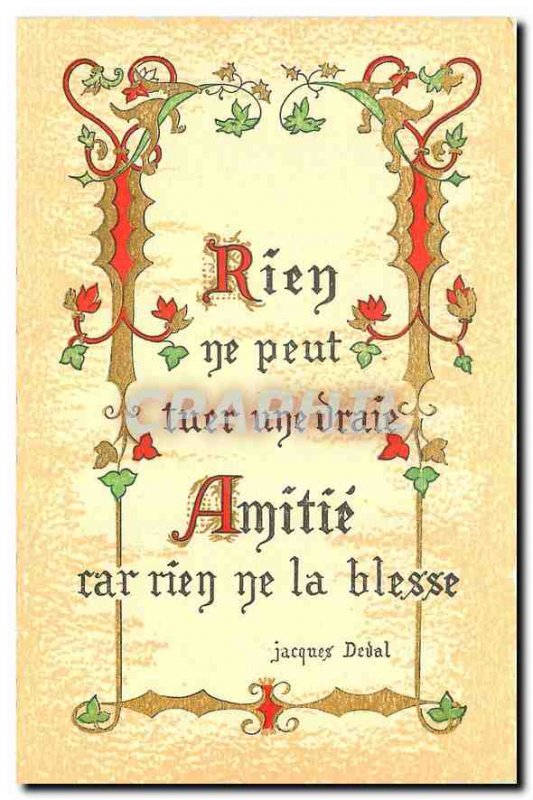 Rien
ne peut
tuer une vraie
Amitié
car rien ne la blesse
jacques Deval
CPAPHIL